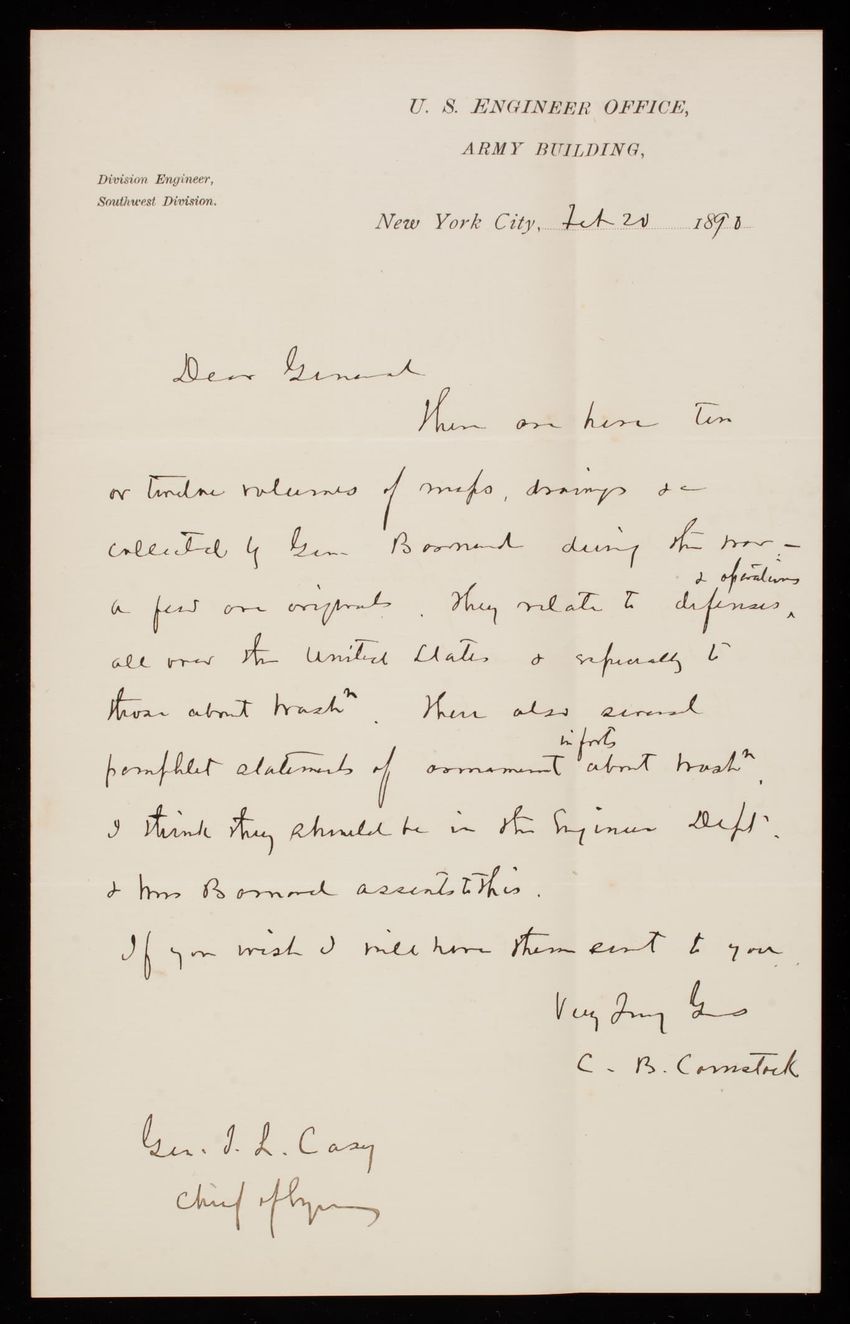 U. S. ENGINEER OFFICE,
ARMY BUILDING,
Division Engineer,
Southwest Division.
New York City, Feb 20 1890
Dear General
There are here ten
or twelve volumes of maps, drawings &c
collected by Gen Barnard during the war –
& operations
a few are originals. They relate to defenses ^
all over the United States & especially to
those about Washn. There also several
in forts
pamphlet statements of armament about Washn.
I think they should be in the Engineer Dept.
& Mrs Barnard assents to this.
If you wish I will have them sent to you.
Very Truly Yours
C. B. Comstock
Gen. T. L. Casey
Chief of Engrs